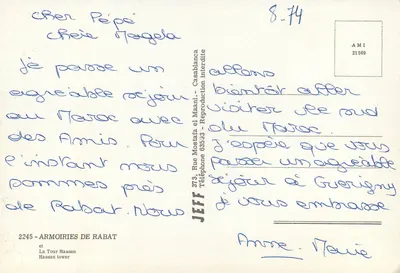 8-74
Cher Pépé
Chère Magela
Je passe un
agréable séjour
au Maroc avec
des Amis. Pour
l'instant nous
sommes près
de Rabat. Nous
allons
bientôt aller
visiter le sud
du Maroc.
J'espère que vous
passez un agréable
séjour à Guérigny
je vous embrasse
Anne-Marie
AMI
21160
JEFF 273, Rue Mostafa el Maani. - Casablanca
Téléphone 63593 - Reproduction interdite
2245 - ARMOIRIES DE RABAT
et
La Tour Hassan
Hassan tower